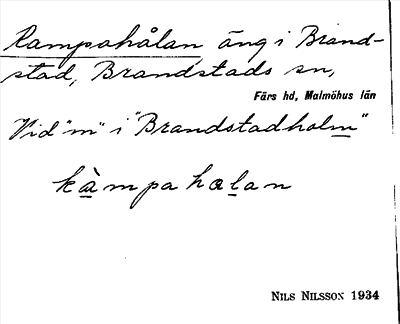 Kampahålan äng i Brand-
stad, Brandstads sn,
Färs hd, Malmöhus län
Vid "m" i "Brandstadholm"
kàmpahɷlan
NILS NILSSON 1934